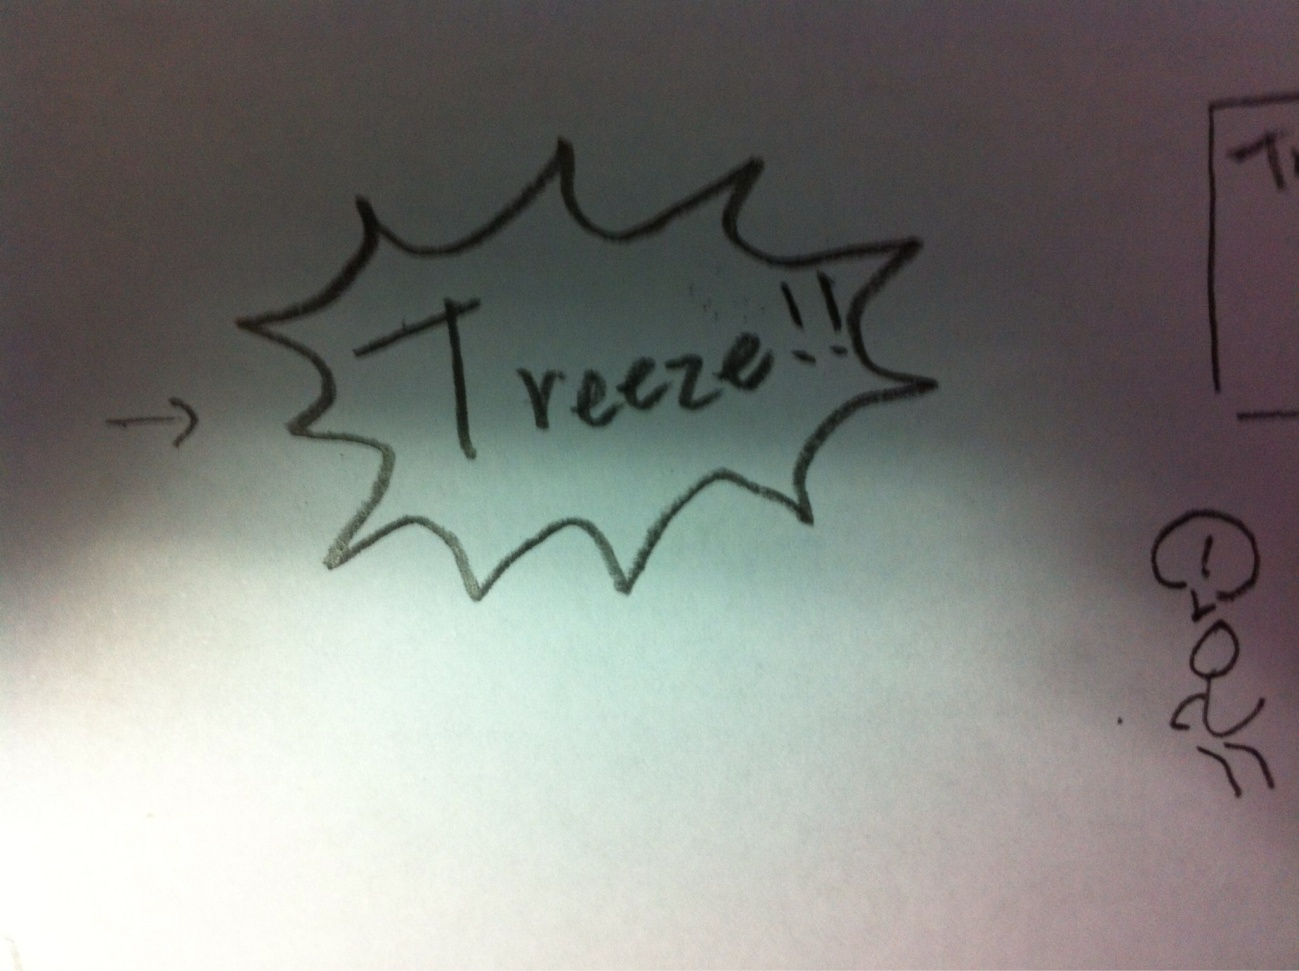 → Treeze!!
Tr
!